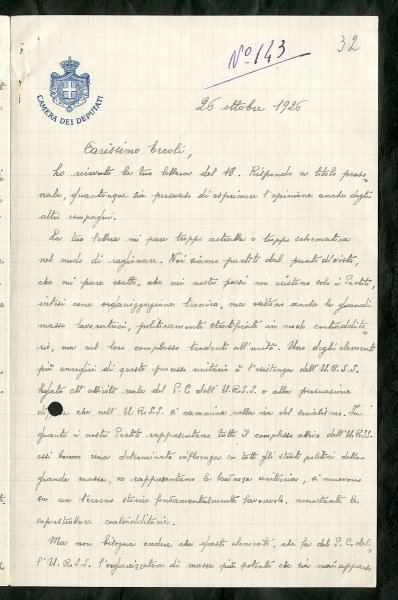 32
Nº 143
CAMERA DEI DEPUTATI
26 ottobre 1926
Carissimo Ercoli,
ho ricevuto la tua lettera del 18. Rispondo a titolo perso-
nale, quantunque sia persuaso di esprimere l'opinione anche degli
altri compagni.
La tua lettera mi pare troppo astratta e troppo schematica
nel modo di ragionare. Noi siamo partiti dal punto di vista,
che mi pare esatto, che nei nostri paesi non esistono solo i Partiti,
intesi come organizzazione tecnica, ma esistono anche le grandi
masse lavoratrici, politicamente stratificate in modo contraddito-
rio, ma nel loro complesso tendenti all'unità. Uno degli elementi
più energici di questo processo unitario è l'esistenza dell'U.R.S.S.
legata all'attività reale del P.C. dell'U.R.S.S. e alla persuasione
che nell'U.R.S.S. si cammina nella via del socialismo. In
quanto i nostri Partiti rappresentano tutto il complesso attivo dell'U.R.S.S.
essi hanno una determinata influenza su tutti gli strati politici della
grande massa, ne rappresentano la tendenza unitaria, si muovono
su un terreno storico fondamentalmente favorevole, nonostante le
superstrutture contradditorie.
Ma non bisogna credere che questo elemento, che fa del P.C. del-
l'U.R.S.S. l'organizzatore di masse più potente che sia mai apparso